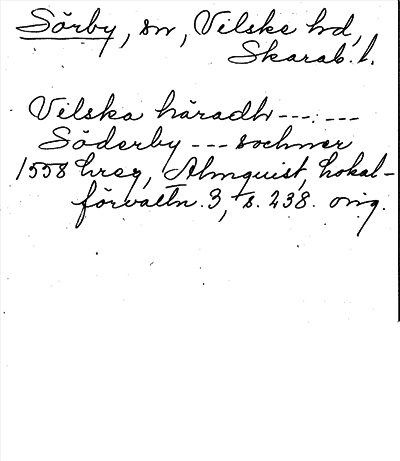 Sörby, sn, Vilske hd,
Skarab. l.
Vilska häradh --- . ---
Söderby --- sochner
1558 hreg, Almquist, Lokal-
förvaltn. 3, s. 238. orig.